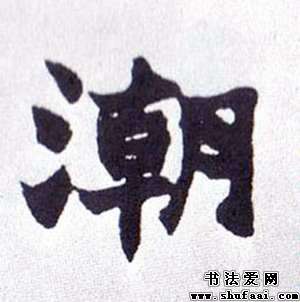 潮
书法爱网
www.shufaai.com